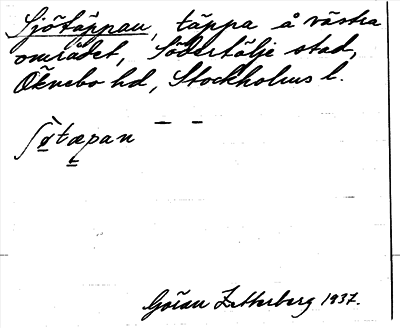 Sjötäppan, täppa å västra
området, Södertälje stad,
Öknebo hd, Stockholms l.
– –
ʃø̀tæpan
Göran Zetterberg 1937.